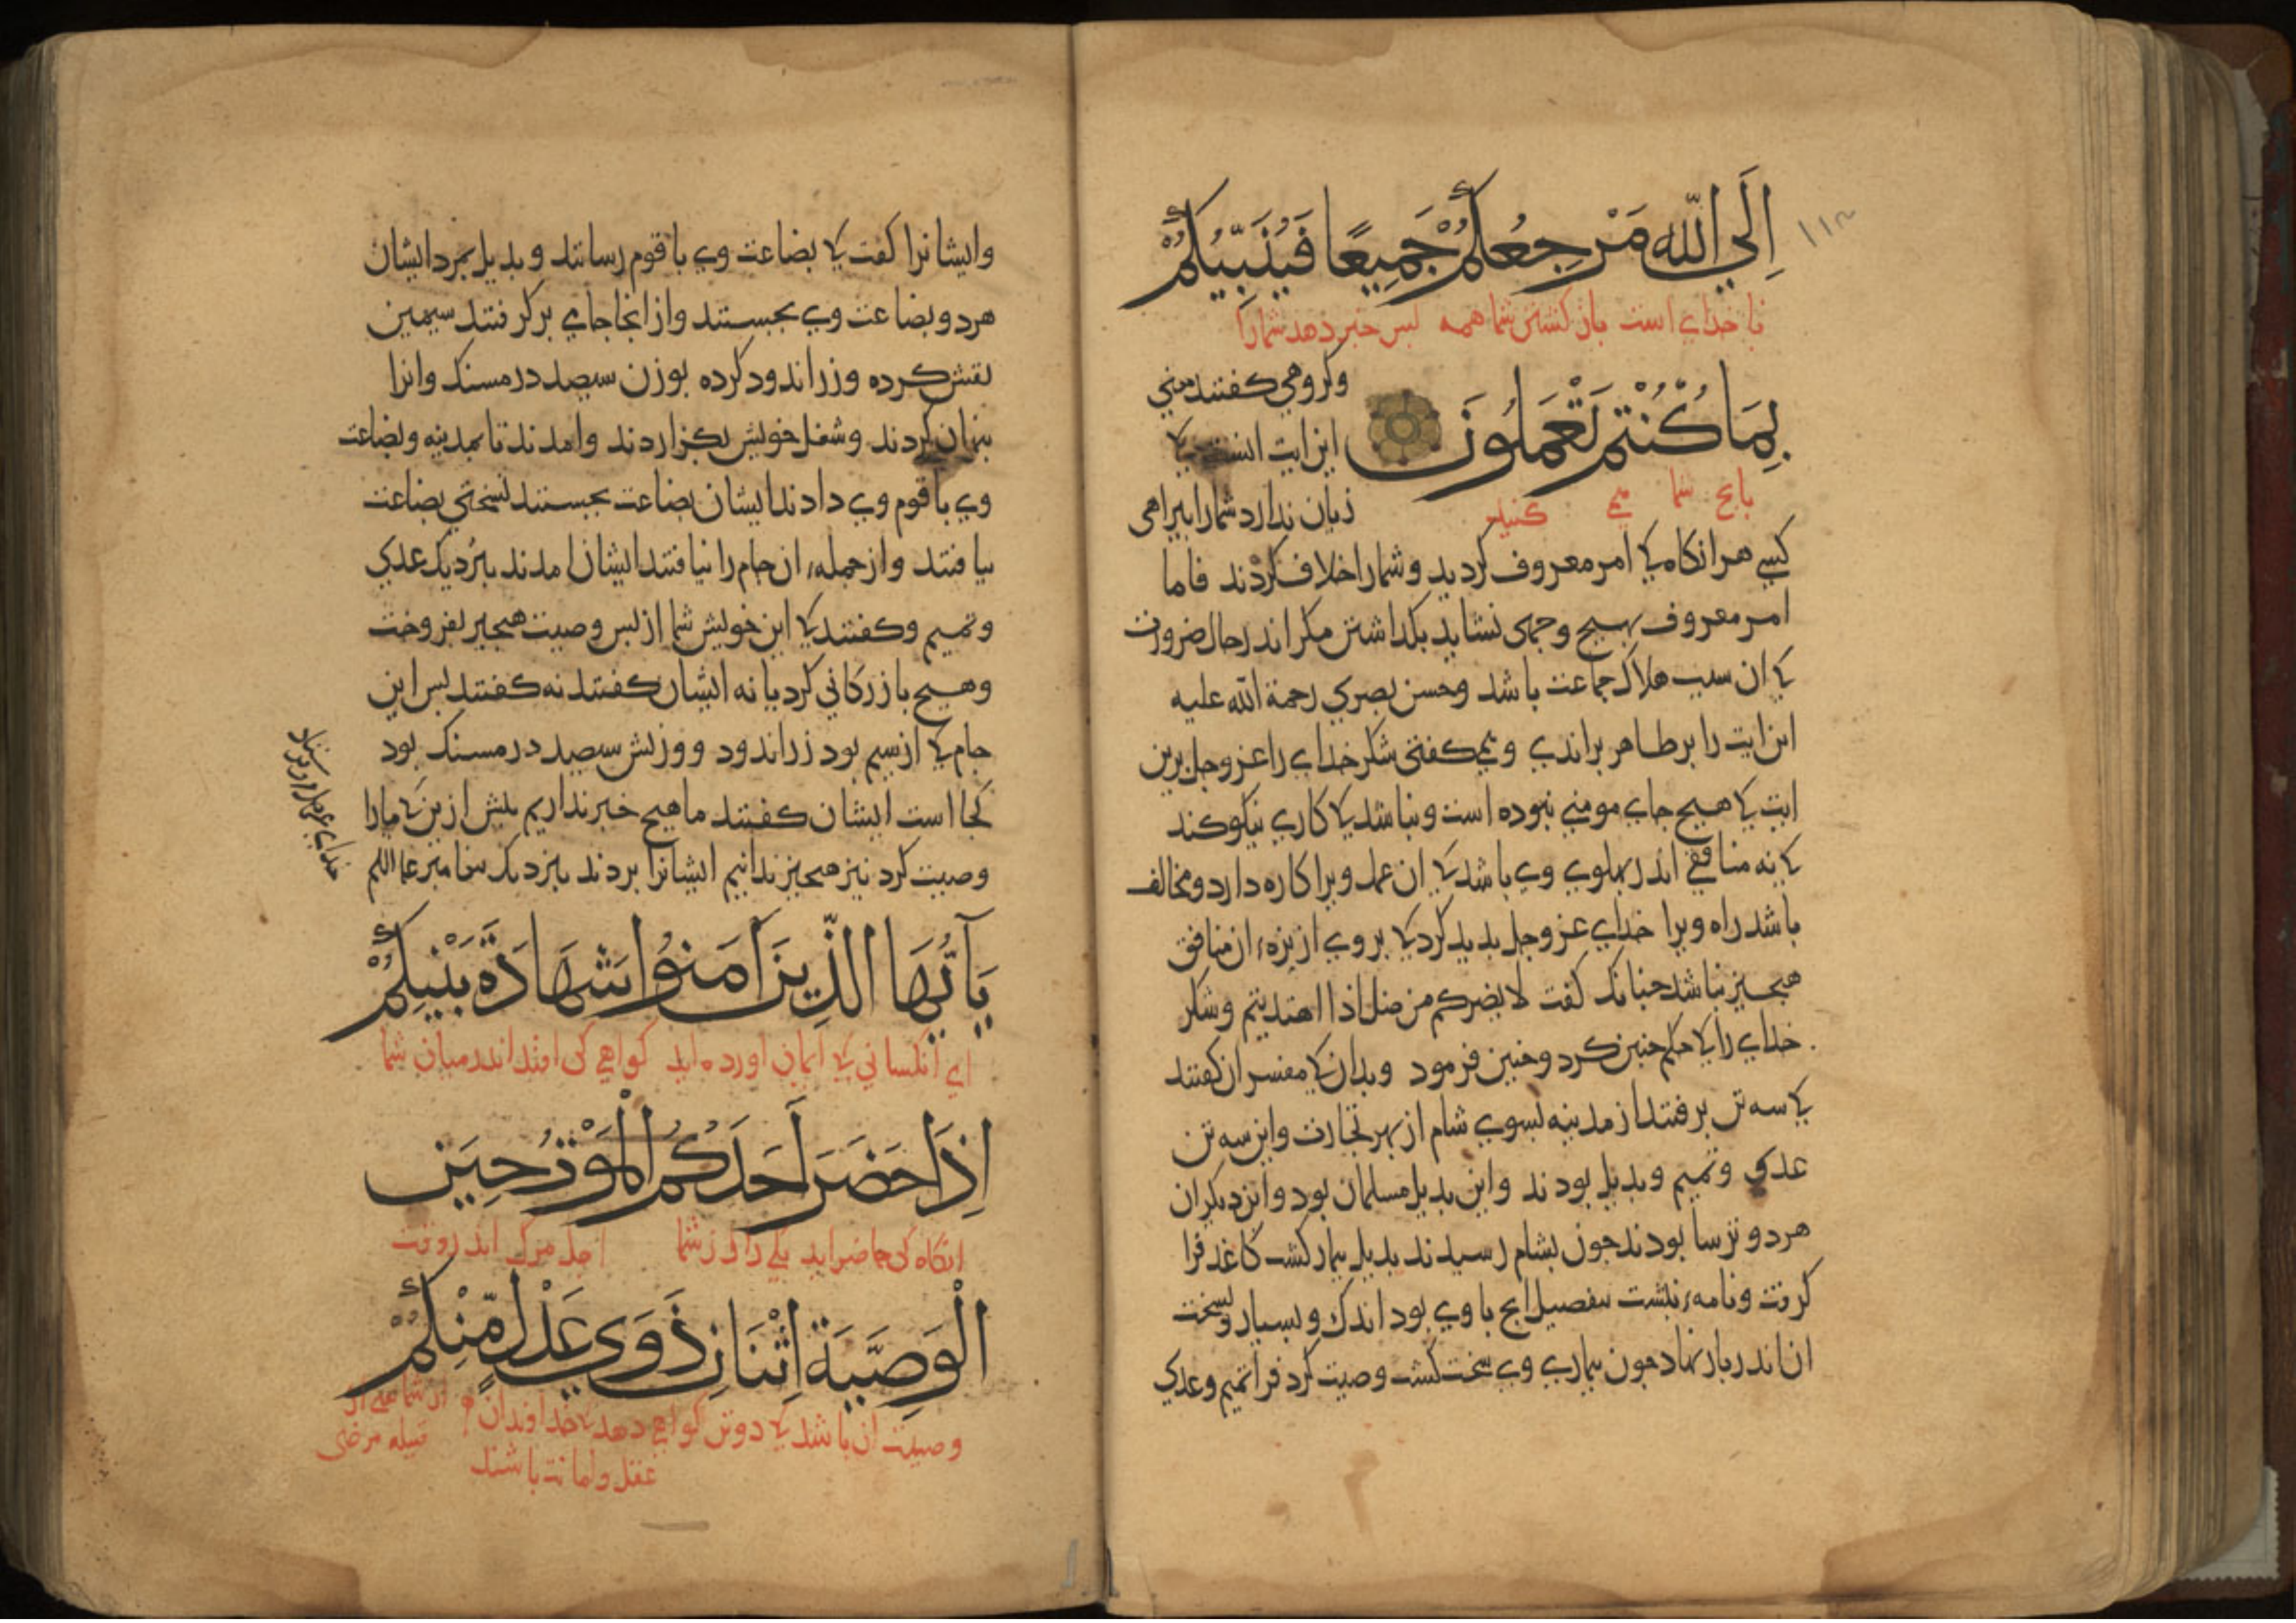 ١١٣
إِلَي اللّٰهِ مَرْجِعُكُمْ جَمِيعًا فَيُنَبِّيُكُمْ
با خداي است باز كشتن شما همه بس خبر دهد شمارا
بِمَا كُنْتُمْ تَعْمَلُونَ
بانج شما مي كنيد
وكروهي كفتند معني
اين ايت انست كا
زيان ندارد شمارا بيراهي
كسي هر انكاه كا امر معروف كرديد و شمارا خلاف كردند فاما
امر معروف بهيج وجهي نشايد بكذاشتن مكر اندر حال ضرورت
كا ان سبب هلاك جماعت باشد وحسن بصري رحمة الله عليه
اين ايت را بر ظاهر براندي و مي كفتي شكر خداي را عز وجل برين
ايت كا هيج جاي مومني نبوده است ونباشد كا كاري نيكو كند
كا نه منافقي اندر بهلوي وي باشد كا ان عمل ويرا كاره دارد ومخالف
باشد راه ويرا خداي عز وجل بديد كرد كا بر وي از بزهء ان منافق
هيجيز نباشد جنانك كفت لا يضركم من ضل اذا اهتديتم وشكر
خداي را كا حكم جنين كرد وجنين فرمود وبدان كا مفسران كفتند
كا سه تن برفتند از مدينه بسوي شام از بهر تجارت واين سه تن
عدي وتميم وبديل بودند واين بديل مسلمان بود واين ديكران
هر دو ترسا بودند جون بشام رسيدند بديل بيمار كشت كاغد فرا
كرفت ونامهء نبشت بتفصيل انج با وي بود اندك وبسيار ونسخت
ان اندر بار نهاد جون بيماري وي سخت كشت وصيت كرد فرا تميم وعدي
وايشانرا كفت كا بضاعت وي با قوم رسانند وبديل بمرد ايشان
هر دو بضاعت وي بجستند واز انجا جامي بر كرفتند سيمين
نقش كرده وزر اندود كرده بوزن سيصد درمسنك وانرا
بنهان كردند وشغل خويش بكزاردند وامدند تا بمدينه وبضاعت
وي با قوم وي دادند ايشان بضاعت بجستند نسختي بضاعت
بيافتند واز جملهء ان جام را نيافتند ايشان امدند بنزديك عدي
وتميم وكفتند كا اين خويش شما از بس وصيت هيجيز بفروخت
وهيج بازركاني كرد يا نه ايشان كفتند نه كفتند بس اين
جام كا از سيم بود زر اندود ووزنش سيصد درمسنك بود
كجا است ايشان كفتند ما هيج خبر نداريم بيش ازين كا مارا
وصيت كرد نيز هيجيز ندانيم ايشانرا بردند بنزديك بيغامبر عليه السلم
يَآ اَيُّهَا الَّذِينَ اٰمَنُوا شَهَادَةُ بَيْنِكُمْ
اي انكساني كا ايمان اورده ايد كواهي كي افتد اندر ميان شما
إِذَا حَضَرَ أَحَدَكُمُ الْمَوْتُ حِينَ
انكاه كي حاضر ايد يكي را از شما اجل مرك اندر وقت
الْوَصِيَّةِ اثْنَانِ ذَوَي عَدْلٍ مِّنْكُمْ
وصيت ان باشد كا دو تن كواهي دهد كا خداوندان
عقل وامانت باشند
از شما يعني از
قبيله مرضي